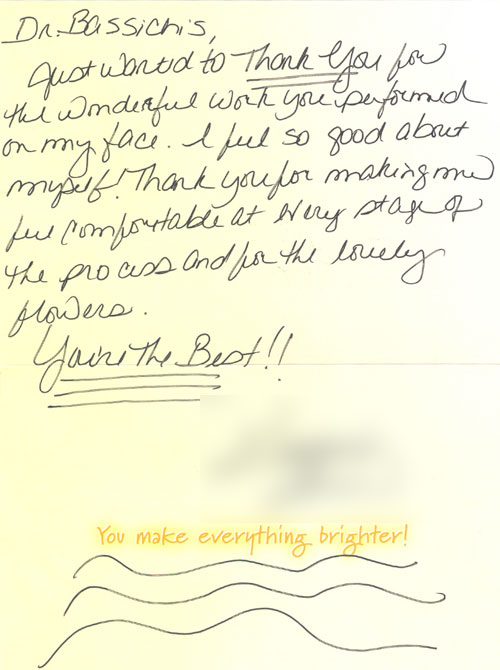 Dr. Bassichis,
Just wanted to Thank You for
the wonderful work you performed
on my face. I feel so good about
myself! Thank you for making me
feel comfortable at every stage of
the process and for the lovely
flowers.
You're The Best!!
You make everything brighter!